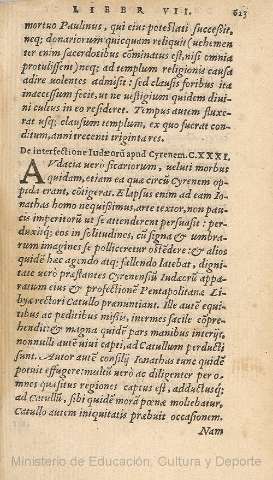 LIBER VII. 623
mortuo Paulinus, qui eius potestati successit,
neq; donariorum quicquam reliquit (uehemen
ter enim sacerdotibus cominatus est, nisi omnia
protulissent) neq; ad templum religionis causa
adire uolentes admisit: sed clausis foribus ita
inaccessum fecit, ut ne uestigium quidem diui-
ni cultus in eo resideret. Tempus autem fluxe-
rat usq; clausum templum, ex quo fuerat con-
ditum, anni trecenti triginta tres.
De interfectione Iudæorũ apud Cyrenem. C. XXXI.
AVdacia uerò sicariorum, ueluti morbus
quidam, etiam ea quæ circũ Cyrenem op-
pida erant, cõtigerat. Elapsus enim ad eam Io-
nathas homo nequissimus, arte textor, non pau-
cis imperitorũ ut se attenderent persuasit: per-
duxitq; eos in solitudines, cũ signa & umbra-
rum imagines se polliceretur ostẽdere: & alios
quidẽ hæc agendo atq; fallendo latebat, digni-
tate uerò præstantes Cyrenensiũ Iudæorũ appa-
ratum eius & profectionẽ Pentapolitanæ Li-
byæ rectori Catullo prænuntiant. Ille autẽ equi-
tibus ac peditibus missis, inermes facile cõpre-
hendit: & magna quidẽ pars manibus interijt,
nonnulli autẽ uiui capti, ad Catullum perducti
sunt. Autor autẽ consilij Ionathas tunc quidẽ
potuit effugere: multũ uero ac diligenter per o-
mnes quæsitus regiones captus est, adductusq;
ad Catullũ, sibi quidẽ morã pœnæ moliebatur,
Catullo autem iniquitatis præbuit occasionem.
Nam
Ministerio de Educación, Cultura y Deporte